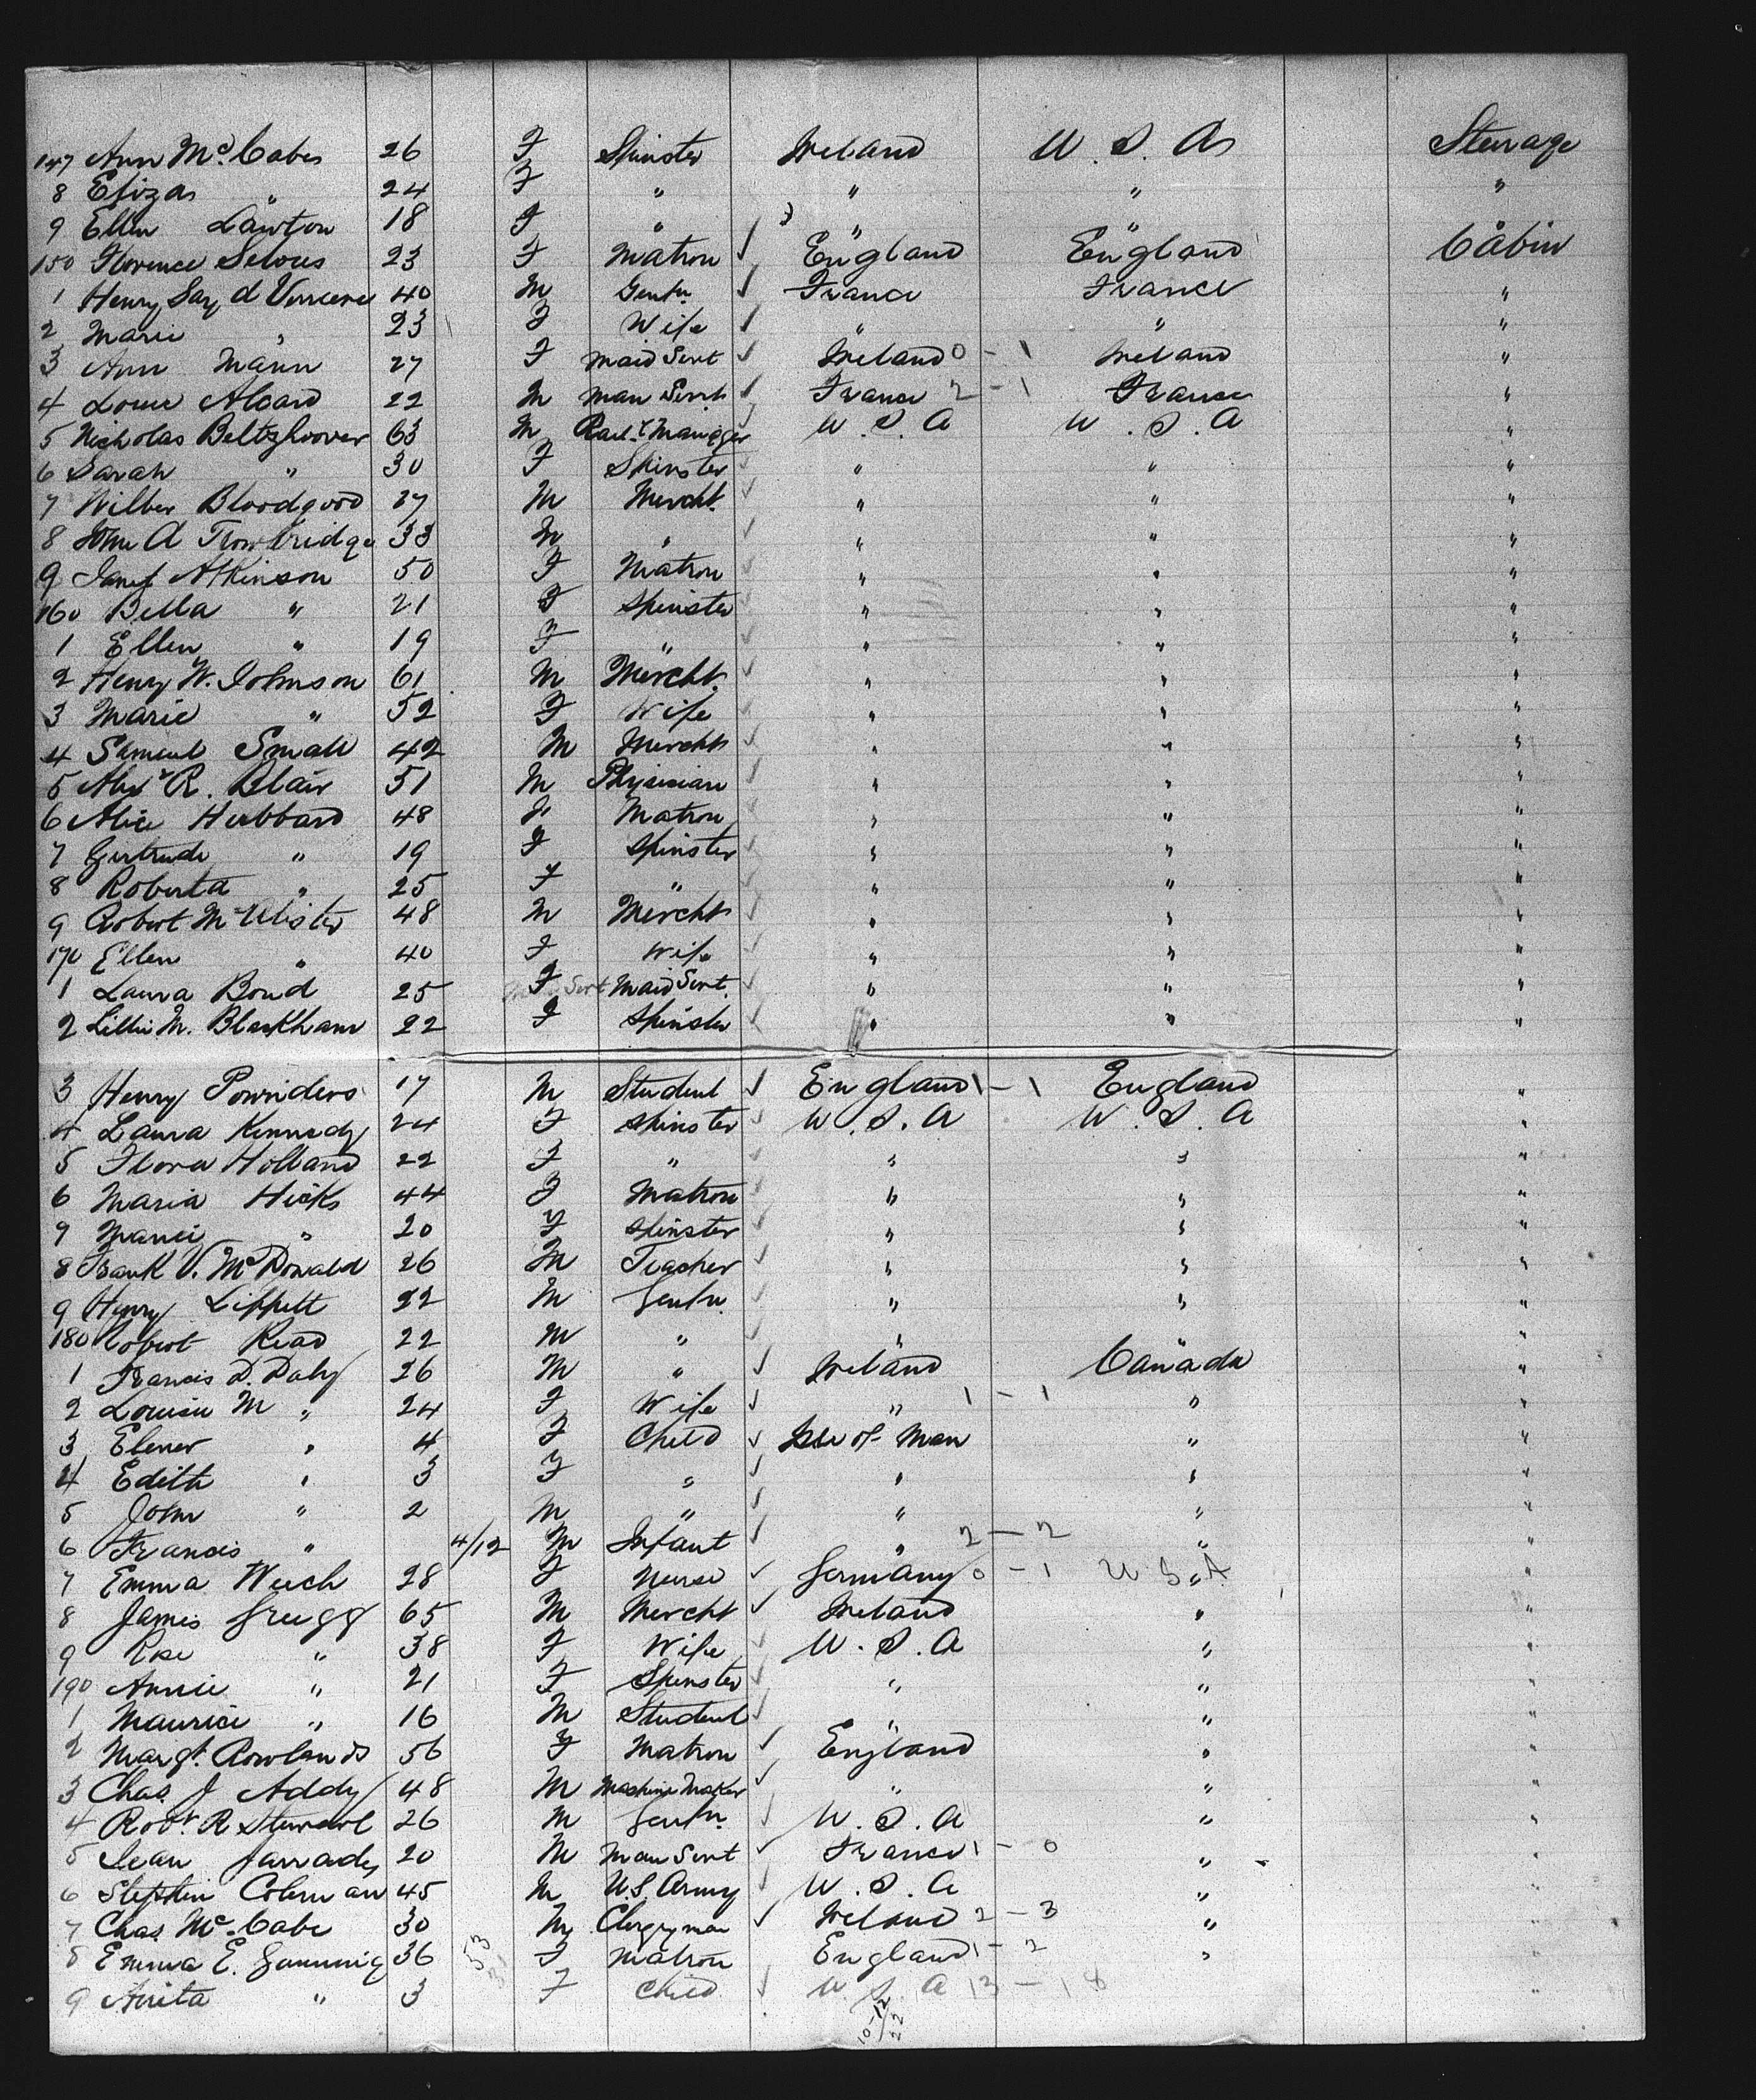 147 Ann McCabe 26 F Spinster Ireland U.S.A Steerage
8 Eliza " 24 F " " " "
9 Ellen Lawton 18 F " " "
150 Florence Selous 23 F Matron England England Cabin
1 Henry Say d 40 M Gentn. France France "
2 Marie " 23 F Wife " " "
3 Ann Mann 27 F Maid Servt Ireland 0 - 1 Ireland "
4 Louis Alcard 22 M Man Servt France 2 - 1 France "
5 Nicholas Beltzhoover 63 M Rail.y Manager U.S.A U.S.A "
6 Sarah " 30 F Spinster " " "
7 Wilber Bloodgood 27 M Mercht. " " "
8 John A Trowbridge 33 M " " " "
9 Janet Atkinson 50 F Matron " " "
160 Bella " 21 F Spinster " " "
1 Ellen " 19 F " " " "
2 Henry W. Johnson 61 M Mercht. " " "
3 Marie " 52 F Wife " " "
4 Samuel Small 42 M Mercht " " "
5 Alexr R. Blair 51 M Physician " " "
6 Alice Hubbard 48 F Matron " " "
7 Gertrude " 19 F Spinster " " "
8 Roberta " 25 F " " " "
9 Robert McAlister 48 M Mercht " " "
170 Ellen " 40 F Wife " " "
1 Laura Bond 25 F Maid Servt. " " "
2 Lillie M. Blackham 22 F Spinster " " "
3 Henry Pownders 17 M Student England 1 - 1 England "
4 Laura Kennedy 24 F Spinster U.S.A U.S.A "
5 Flora Holland 22 F " " " "
6 Maria Hicks 44 F Matron " " "
7 " 20 F Spinster " " "
8 Frank V. McDonald 26 M Teacher " " "
9 Henry Lippett 22 M Gentn. " " "
180 Robert Read 22 M " " " "
1 Francis D. Daly 26 M " Ireland Canada "
2 Louisa M " 24 F Wife " 1 - 1 " "
3 Elener " 4 F Child Isle of Man " "
4 Edith " 3 F " " " "
5 John " 2 M " " " "
6 Francis " 4/12 M Infant " 2 - 2 " "
7 Emma Weech 28 F Nurse Germany 0 - 1 U S A " "
8 James Gregg 65 M Mercht Ireland " "
9 Rose " 38 F Wife U.S.A " "
190 Annie " 21 F Spinster " " "
1 Maurice " 16 M Student " " "
2 Margt. Rowlands 56 F Matron England " "
3 Chas. J Addy 48 M Machine Maker " " "
4 Robt. R Stewart 26 M Gentn. U.S.A " "
5 Jean 20 M Man Servt France 1 - 0 " "
6 Stephen Coleman 45 M U.S. Army U.S.A " "
7 Chas. McCabe 30 M Clergyman Ireland 2 - 3 " "
8 Emma E. Gunning 36 53 F Matron England 1 - 2 " "
9 Anita " 3 F Child U S A 13 - 18 "
10-12
22